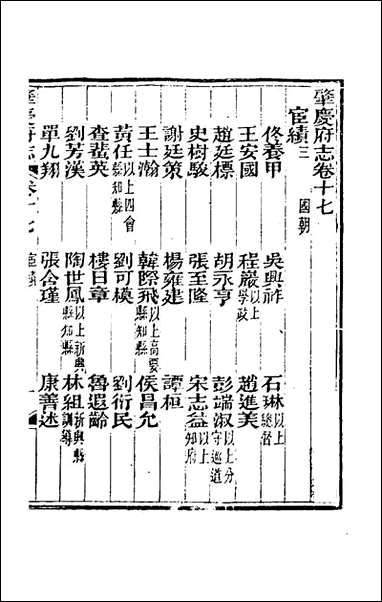 肇慶府志卷十七
宦績三 國朝
佟養甲 吳興祚 石琳以上總督
王安國 程巖以上學政 趙進美
趙廷標 胡永亨 彭端淑以上分守巡道
史樹駿 張至隆 宋志益以上知府
謝廷策 楊雍建 譚桓
王士瀚 韓際飛以上高要縣知縣 侯昌允
黃任以上四會縣知縣 劉可模 劉衍民
查蜚英 樓日章 魯遐齡
劉芳漢 陶世鳳以上新興縣知縣 林組新興縣訓導
單九翔 張合瑾 康善述
肇慶府志 卷十七 宦績